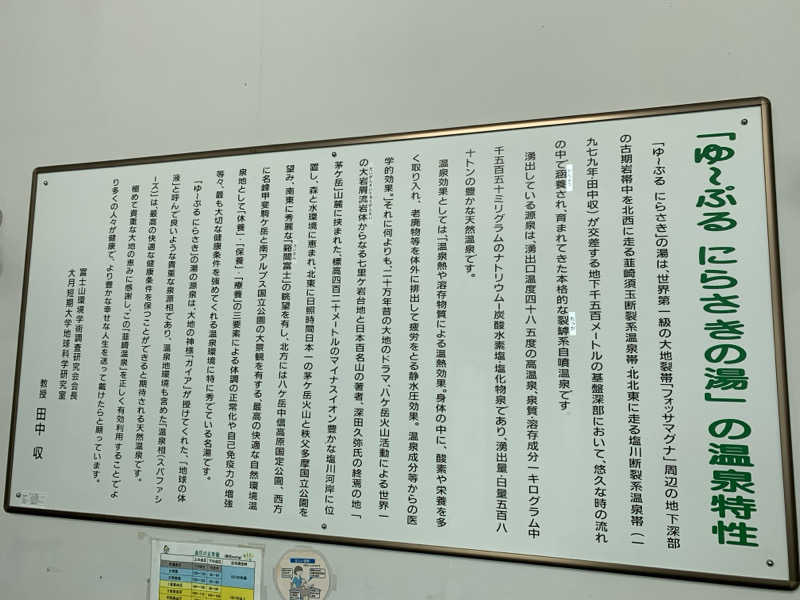 「ゆ～ぷる にらさきの湯」の温泉特性
「ゆ～ぷる にらさき」の湯は、世界第一級の大地裂帯「フォッサマグナ」周辺の地下深部
の古期岩帯中を北西に走る韮崎須玉断裂系温泉帯・北北東に走る塩川断裂系温泉帯（一
九七九年田中収）が交差する地下千五百メートルの基盤深部において、悠久な時の流れ
の中で涵養され、育まれてきた本格的な裂罅系自噴温泉です。
湧出している源泉は、湧出口温度四十八．五度の高温泉、泉質・溶存成分一キログラム中
千五百五十ミリグラムのナトリウム―炭酸水素塩・塩化物泉であり、湧出量・日量五百八
十トンの豊かな天然温泉です。
温泉効果としては、「温泉熱や溶存物質による温熱効果。身体の中に、酸素や栄養を多
く取り入れ、老廃物等を体外に排出して疲労をとる静水圧効果。温泉成分等からの医
学的効果。」それに何よりも、二十万年昔の大地のドラマ、八ケ岳火山活動による世界一
の大岩屑流岩体からなる七里ケ岩台地と日本百名山の著者、深田久弥氏の終焉の地「
茅ケ岳」山麓に挟まれた、標高四百二十メートルのマイナスイオン豊かな塩川河岸に位
置し、森と水環境に恵まれ、北東に日照時間日本一の茅ケ岳火山と秩父多摩国立公園を
望み、南東に秀麗な「谿間富士」の眺望を有し、北方には八ケ岳中信高原国定公園、西方
に名峰甲斐駒ケ岳と南アルプス国立公園の大景観を有する、最高の快適な自然環境温
泉地として「休養」・「保養」・「療養」の三要素による体調の正常化や自己免疫力の増強
等々、最も大切な健康条件を強めてくれる温泉環境に特に秀でている名湯です。
「ゆ～ぷる にらさき」の湯の源泉は、大地の神様「ガイア」が授けてくれた、「地球の体
液」と呼んで良いような貴重な泉源相であり、温泉地環境も含めた「温泉相（スパファシ
ーズ）」は、最高の快適な健康条件を保つことができると期待される天然温泉です。
極めて貴重な大地の恵みに感謝し、この「韮崎温泉」を正しく有効利用することでよ
り多くの人々が健康で、より豊かな幸せな人生を送って戴けたらと願っています。
富士山環境学術調査研究会会長
大月短期大学地球科学研究室
教授 田中 収